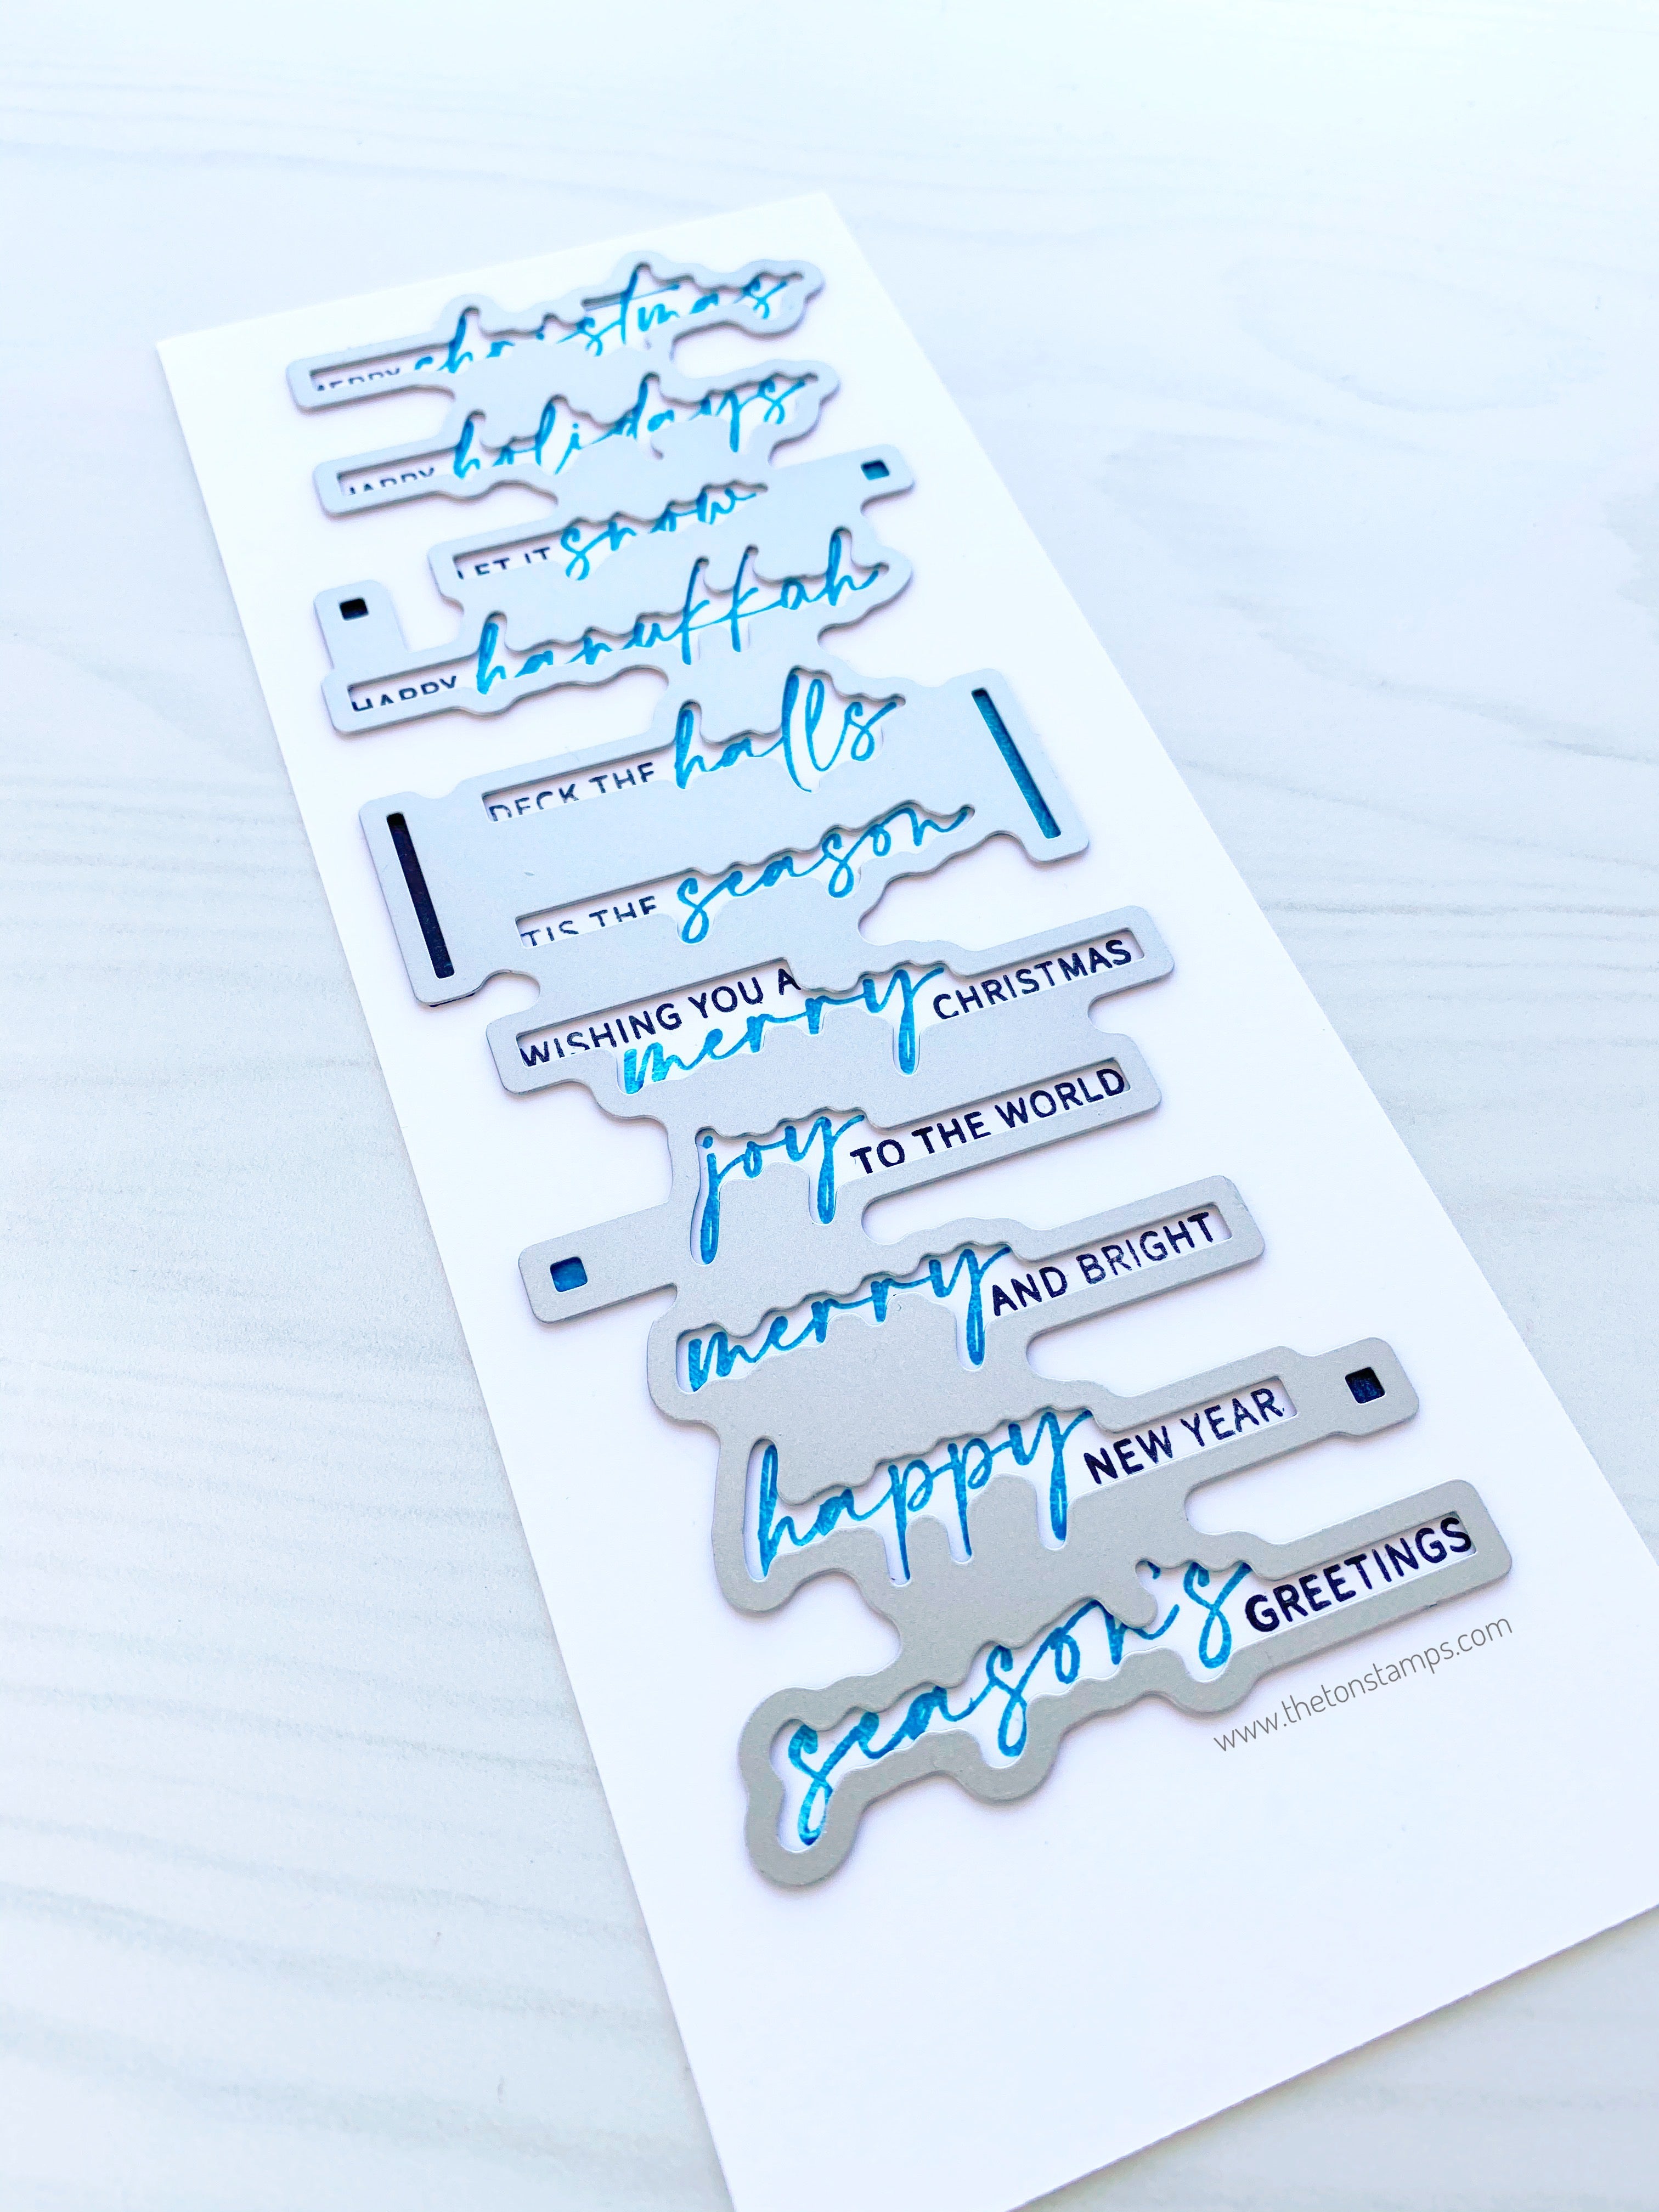 MERRY christmas
HAPPY holidays
LET IT snow
HAPPY hanukkah
DECK THE halls
TIS THE season
WISHING YOU A
merry CHRISTMAS
joy TO THE WORLD
merry AND BRIGHT
happy NEW YEAR
season's GREETINGS
www.thetonstamps.com